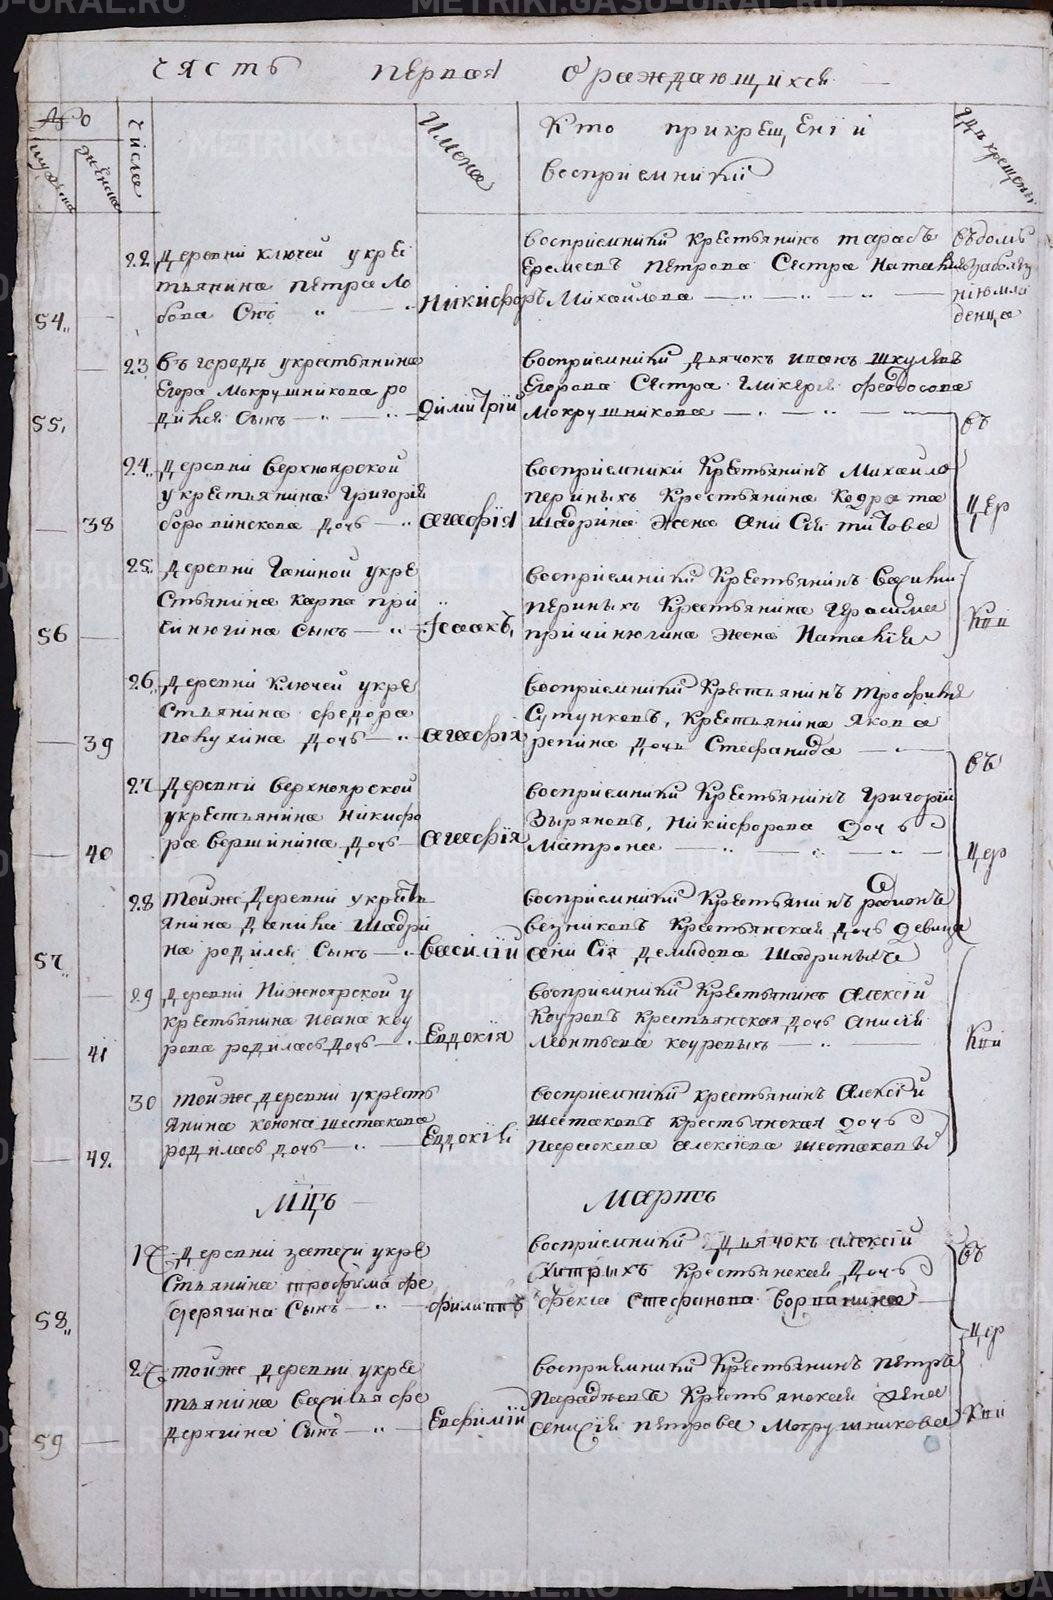 Часть первая о раждающихся
№
мужеска
женска
Числа
Имена
Кто при крещении
восприемники
Гдѣ крещены
22 Деревни ключей у кре
стьянина петра Ло
бова Снъ
54
Никифоръ
восприемники крестьянинъ тарасъ
Еремеевъ петрова Сестра Наталия
Михайлова
въ домѣ
за болез
нию мла
денца
23 Въ городѣ у крестьянина
Егора Мокрушникова ро
дился Сынъ
55
Димитрий
восприемники дьячокъ иванъ шкулевъ
Егорова Сестра гликерия феодосова
Мокрушникова
24 Деревни верхноярской
у крестьянина Григория
боровинскова дочь
38
агафїя
восприемники Крестьянинъ Михайло
периныхъ Крестьянина Кодрата
шадрина жена Анисия титова
въ
цер
кви
25 Деревни Ганиной у кре
стьянина карпа при
чинюгина сынъ
56
Исаакъ
восприемники Крестьянинъ Василий
периныхъ Крестьянина Герасима
причинюгина жена Наталия
26 Деревни Ключей у кре
стьянина федора
покухина дочь
39
агафїя
восприемники Крестьянинъ трофимъ
Сутунковъ, Крестьянина якова
репина дочь Стефанида
27 Деревни верхноярской
у крестьянина Никифо
ра вершинина дочь
40
агафїя
восприемники Крестьянинъ Григорий
Зыряновъ, Никифорова дочь
Матрона
въ
цер
кви
28 Тойже Деревни у кресть
янина Данила Шадри
на родился Сынъ
57
василий
восприемники Крестьянинъ родионъ
везниковъ Крестьянская дочь девица
анисия демидова Шадриныхъ
29 деревни Нижноярской у
крестьянина Ивана коу
рова родилась дочь
41
Евдокїя
восприемники Крестьянинъ Алексий
Коуровъ крестьянская дочь анисия
Леонтьева коуровыхъ
30 тойже деревни у кресть
янина конона шестакова
родилась дочь
42
Евдокїя
восприемники крестьянинъ Алексий
шестаковъ крестьянская дочь
параскева алексїева шестаковы
Мцъ Мартъ
1 Деревни затечи у кре
стьянина трофима фе
дерягина Сынъ
58
филиппъ
восприемники дьячокъ алексий
Хитрыхъ Крестьянская дочь
фекла стефанова ворпанина
въ
цер
кви
2 тойже деревни у крес
тьянина Василья фе
дерягина Сынъ
59
Евфимий
восприемники Крестьянинъ петръ
Крестьянская жена
анисия петрова Мокрушникова